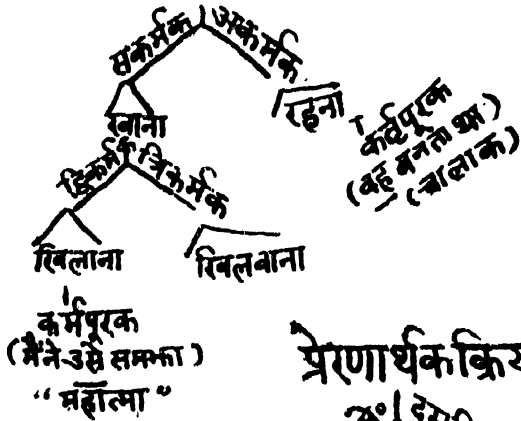 सकर्मक अकर्मक
खाना
रहना
कर्तृपूरक
(वह बनता था)
(चालाक)
द्विकर्मक त्रिकर्मक
खिलाना
खिलवाना
कर्मपूरक
(मैंने उसे समझा)
"महात्मा"
प्रेरणार्थक क्रिय